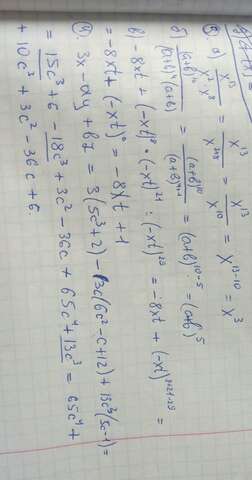 5. а) x¹³ / x² · x⁸ = x¹³ / x²⁺⁸ = x¹³ / x¹⁰ = x¹³⁻¹⁰ = x³
б) (a+b)¹⁰ / (a+b)⁴ (a+b) = (a+b)¹⁰ / (a+b)⁴⁺¹ = (a+b)¹⁰⁻⁵ = (a+b)⁵
в) -8xt + (-xt)⁸ · (-xt)²¹ : (-xt)²⁹ = -8xt + (-xt)⁸⁺²¹⁻²⁹ =
= -8xt + (-xt)⁰ = -8xt + 1
= 3(5c³+2) - 3c(6c²-c+12) + 13c³(5c-1) =
= 15c³ + 6 - 18c³ + 3c² - 36c + 65c⁴ + 13c³ = 65c⁴ +
+ 10c³ + 3c² - 36c + 6